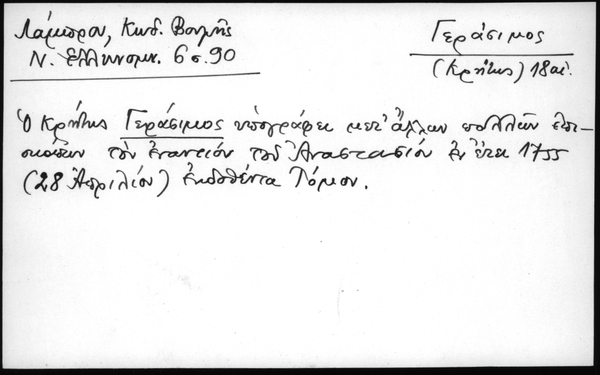 Λάμπρου, Κωδ. Βουλῆς
Ν. Ἑλληνομν. 6 σ. 90
Γεράσιμος
(Κρήτης) 18 αἰ.
Ὁ Κρήτης Γεράσιμος ὑπογράφει μετ' ἄλλων πολλῶν ἐπι-
σκόπων τὸν ἐναντίον τοῦ Ἀναστασίου ἐν ἔτει 1755
(28 Ἀπριλίου) ἐκδοθέντα Τόμον.